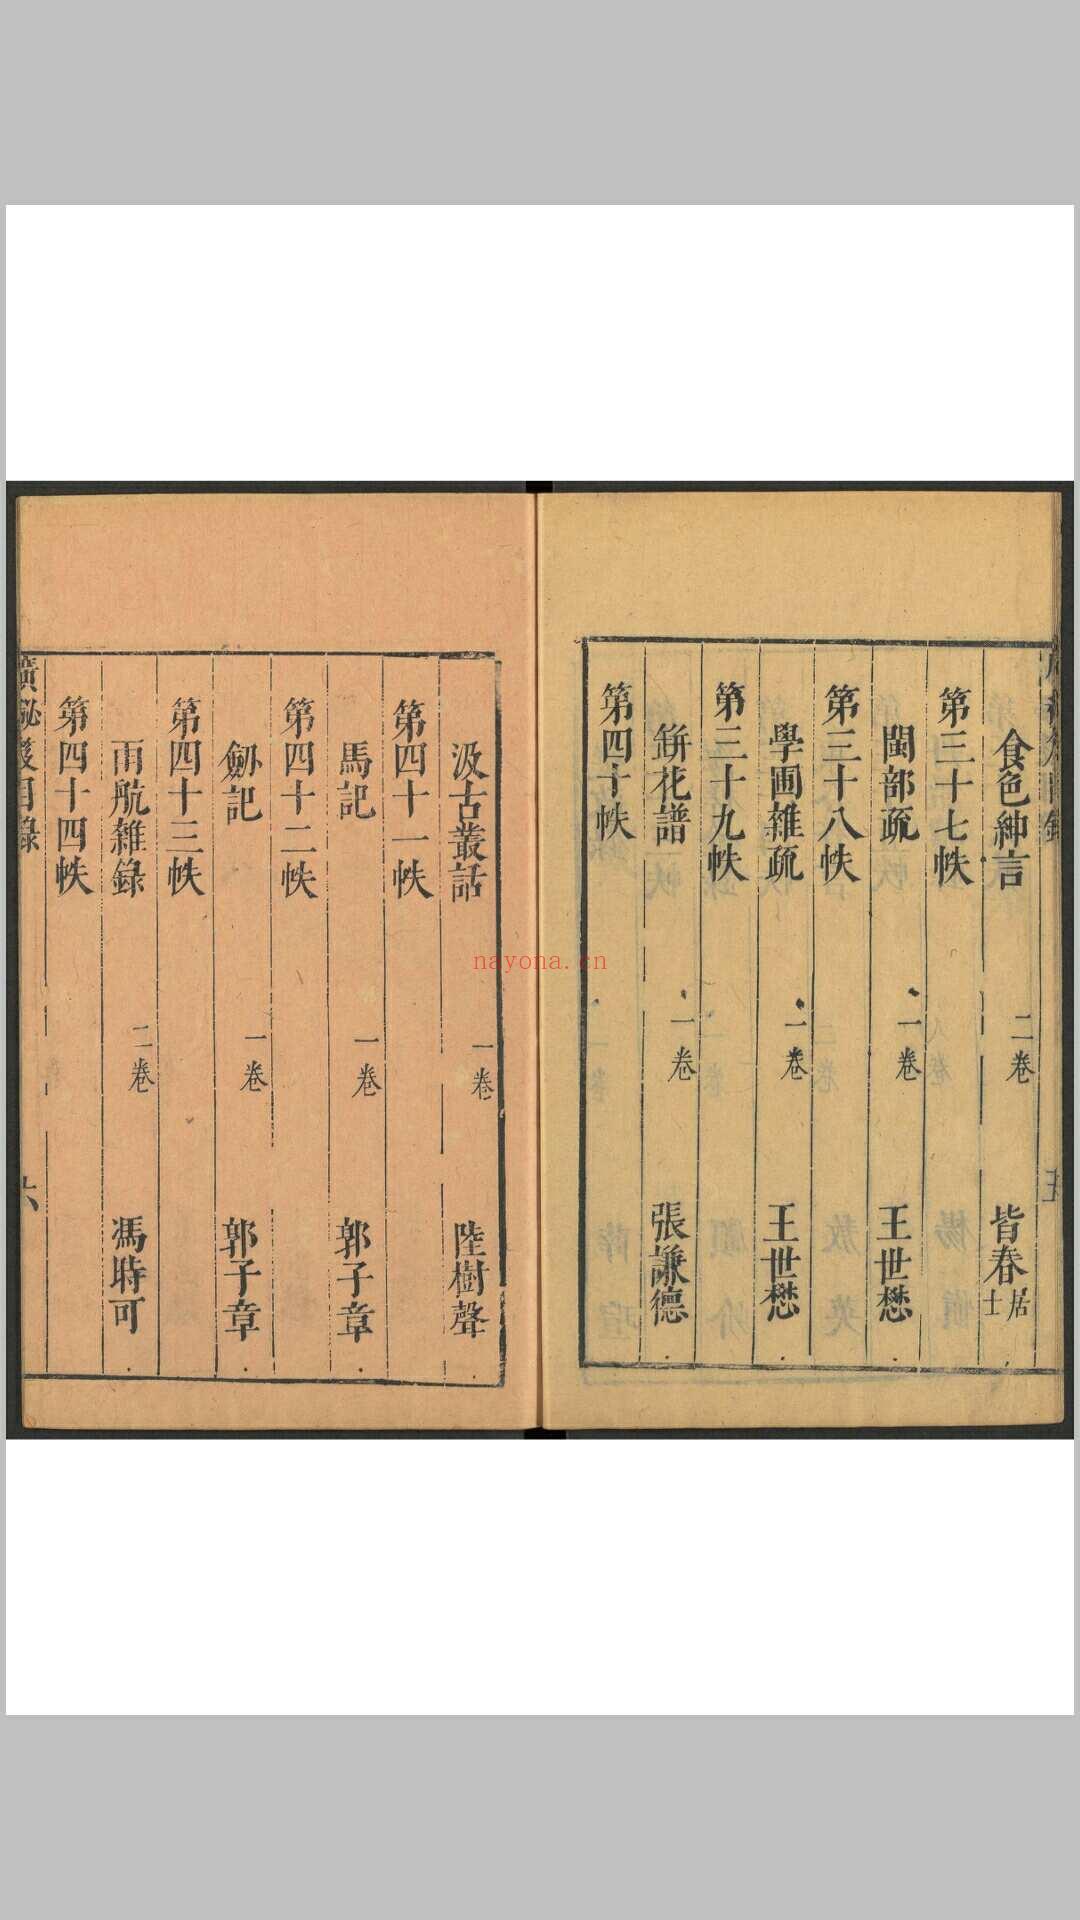 食色紳言 二卷 皆春居士
第三十七帙
閩部疏 一卷 王世懋
第三十八帙
學圃雜疏 一卷 王世懋
第三十九帙
缾花譜 一卷 張謙德
第四十帙
汲古叢話 一卷 陸樹聲
第四十一帙
馬記 一卷 郭子章
第四十二帙
劒記 一卷 郭子章
第四十三帙
雨航雜錄 二卷 馮時可
第四十四帙
廣秘笈目錄 六
nayona.cn